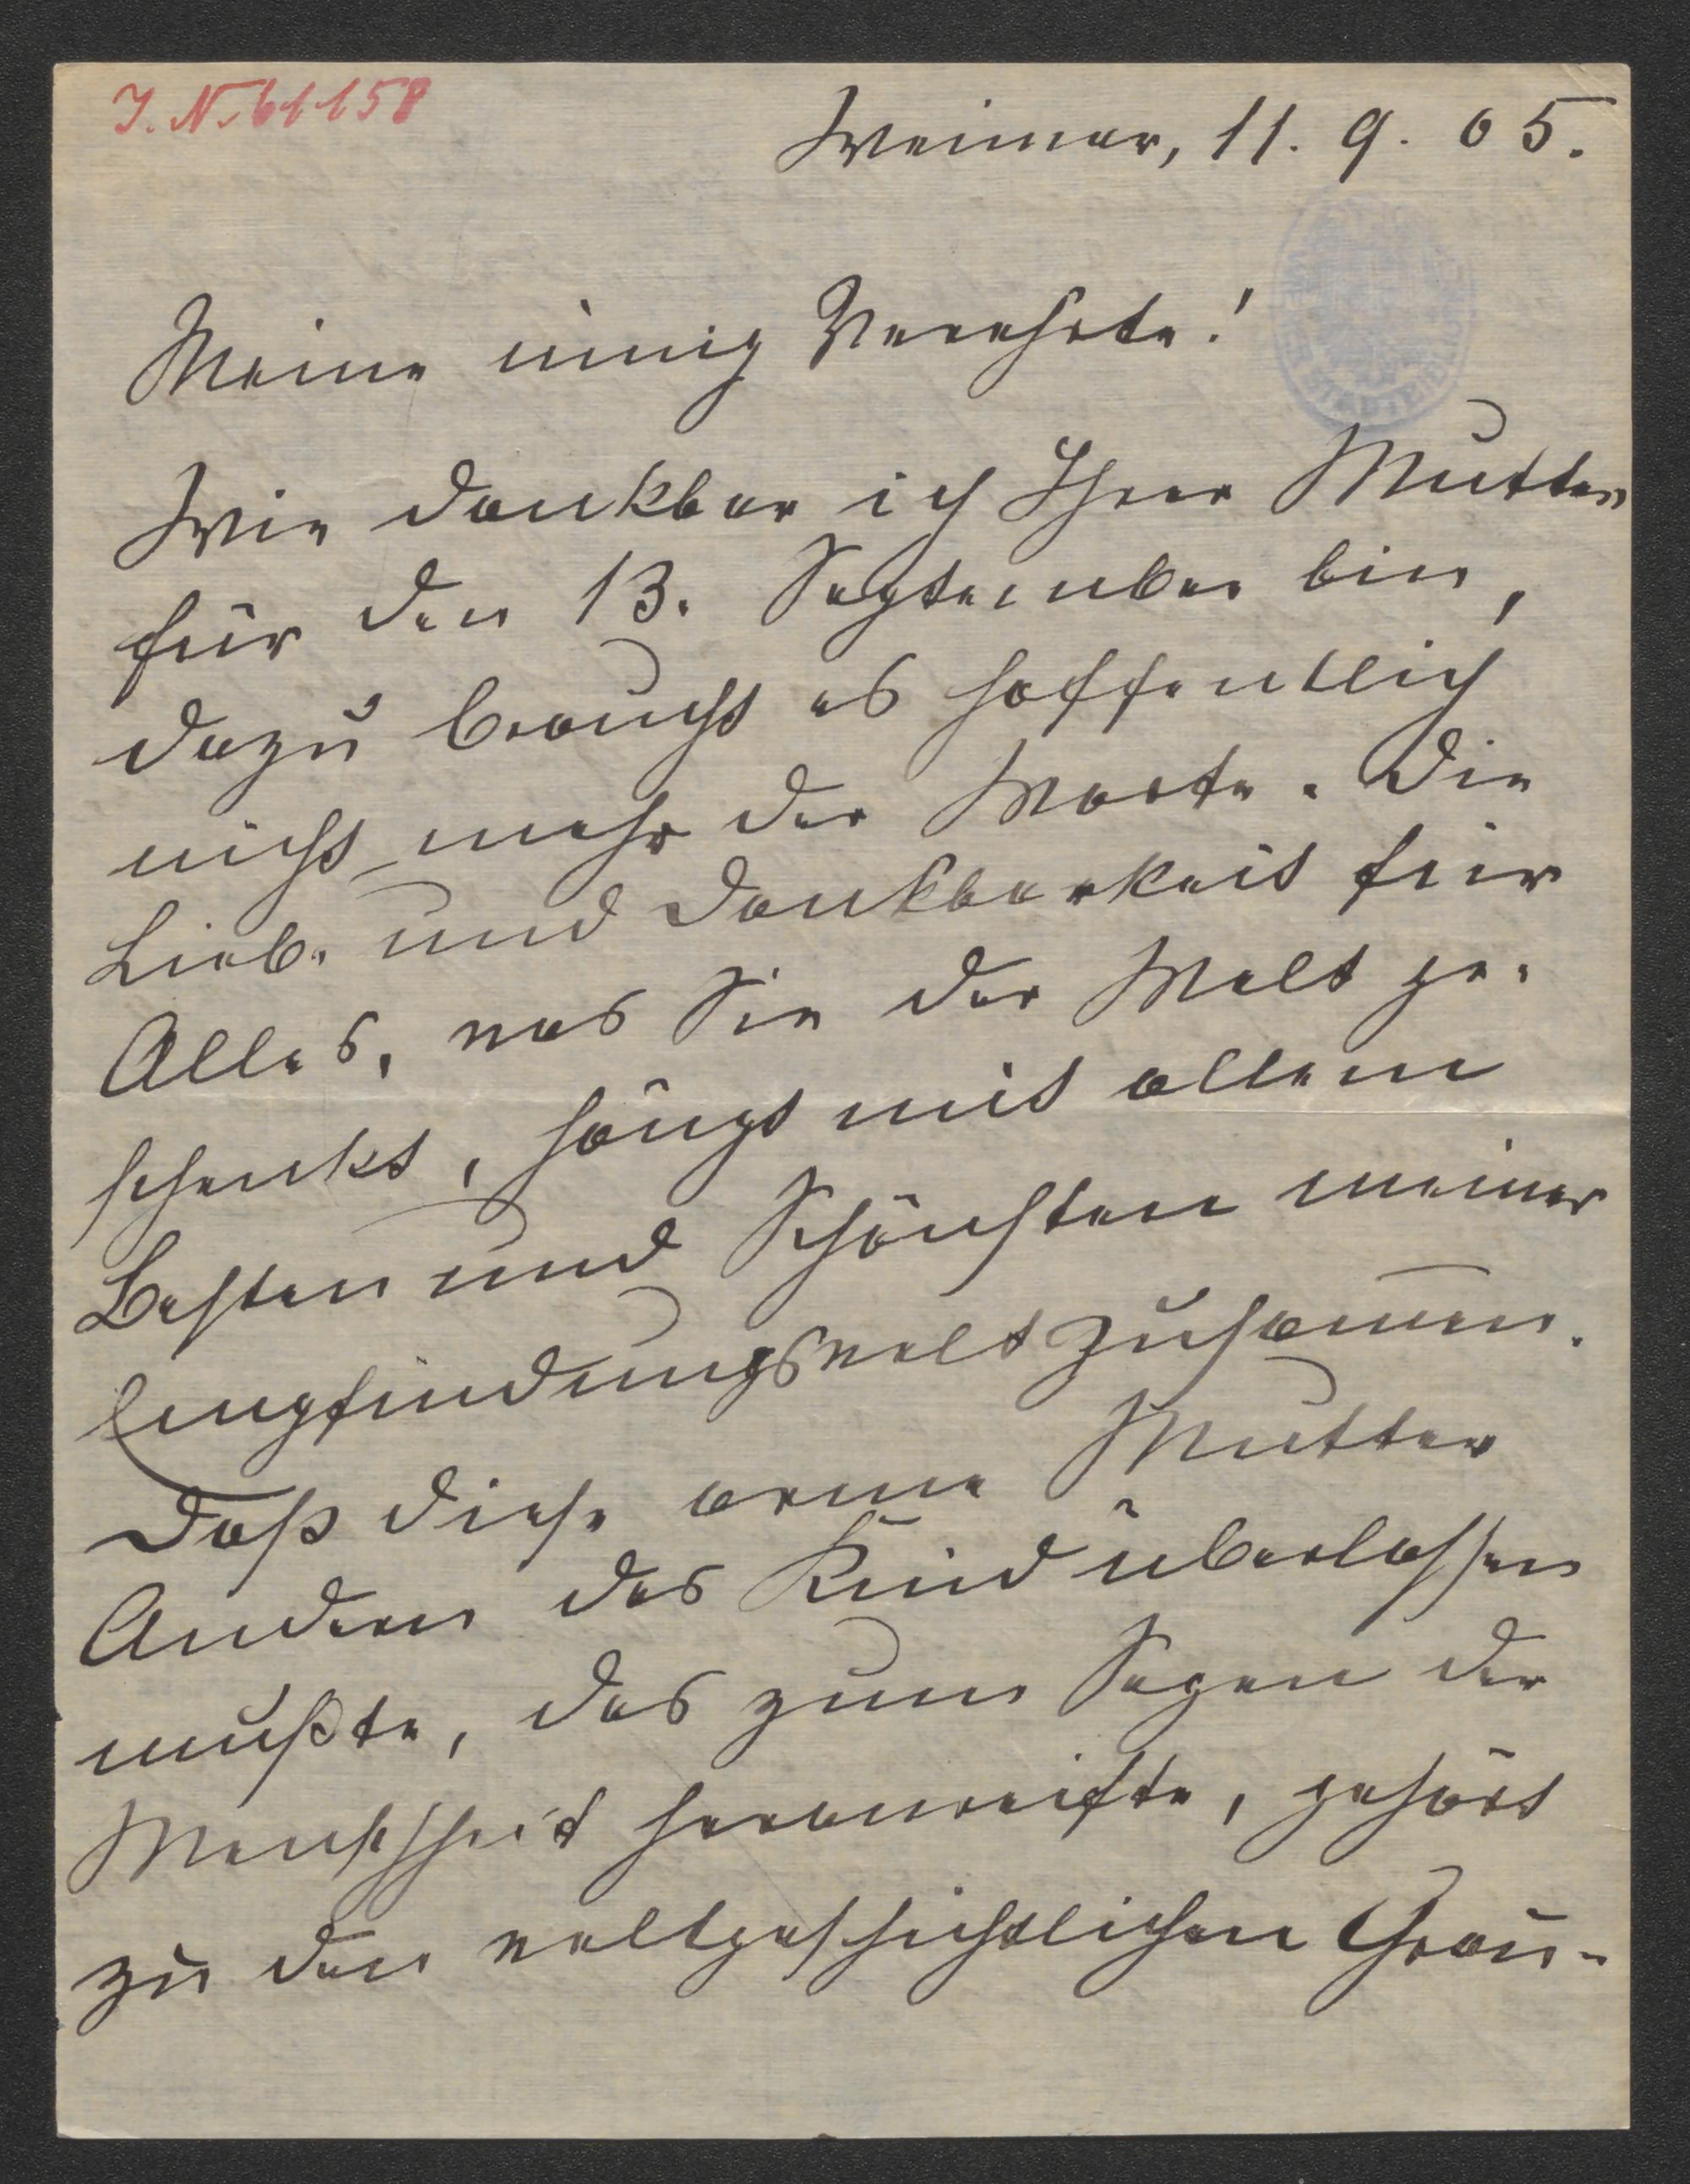 J. N. 61158
Weimar, 11. 9. 05.
Meine innig Verehrte!
Wie dankbar ich Ihrer Mutter
für den 13. September bin,
dazu braucht es hoffentlich
nicht mehr der Worte. Die
Lieb' und Dankbarkeit für
Alles, was Sie der Welt ge-
schenkt, hängt mit allem
Besten und Schönsten meiner
Empfindungswelt zusam̅en.
Daß diese arme Mutter
Andern das Kind überlassen
mußte, das zum Segen der
Menschheit heranreifte, gehört
zu den weltgeschichtlichen Grau-